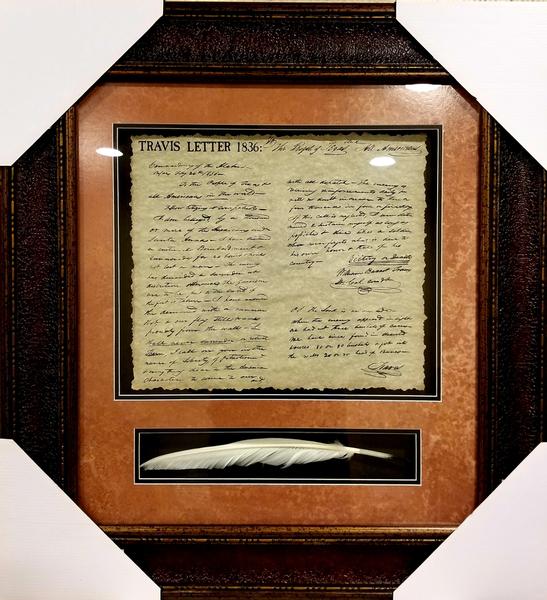 TRAVIS LETTER 1836: To The People of Texas & All Americans
Commandancy of the Alamo
Bejar Fby 24th 1836
To the People of Texas &
all Americans in the world
Fellow Citizens & Compatriots
I am besieged by a thousand
or more of the Mexicans under
Santa Anna I have sustained
a continual Bombardment &
cannonade for 24 hours & have
not lost a man The enemy
has demanded a surrender at
discretion otherwise the garrison
are to be put to the sword if
the fort is taken I have answered
the demand with a cannon
shot & our flag still waves
proudly from the walls I
shall never surrender or retreat
Then I call on you in the
name of Liberty of patriotism &
everything dear to the American
character to come to our aid
with all dispatch The enemy is
receiving reinforcements daily &
will no doubt increase to three or
four thousand in four or five days
If this call is neglected I am determined
to sustain myself as long as
possible & die like a soldier
who never forgets what is due to
his own honor & that of his
country
Victory or Death
William Barret Travis
Lt. Col. comdt
P.S. The Lord is on our side
When the enemy appeared in sight
we had not three bushels of corn
We have since found in deserted
houses 80 or 90 bushels & got into
the walls 20 or 30 head of Beeves
Travis